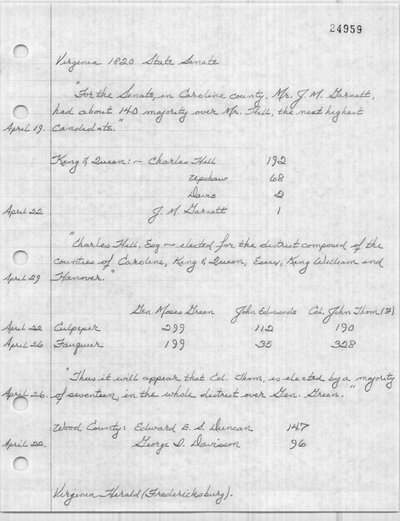 24959
Virginia 1820 State Senate
"For the Senate, in Caroline county, Mr. J. M. Garnett,
had about 140 majority over Mr. Hill, the next highest
April 19. candidate."
King & Queen: ~ Charles Hill 192
Upshaw 68
Davis 2
April 22 J. M. Garnett 1
"Charles Hill, Esq ~ elected for the district composed of the
counties of Caroline, King & Queen, Essex, King William and
April 29 Hanover."
Gen. Moses Green John Edmunds Col. John Thom (F)
April 22 Culpeper 299 112 190
April 26 Fauquier 199 35 328
"Thus it will appear that Col. Thom, is elected by a majority
April 26. of seventeen, in the whole district over Gen. Green."
Wood County: Edward E. S. Duncan 147
April 22. George D. Davisson 96
Virginia Herald (Fredericksburg).